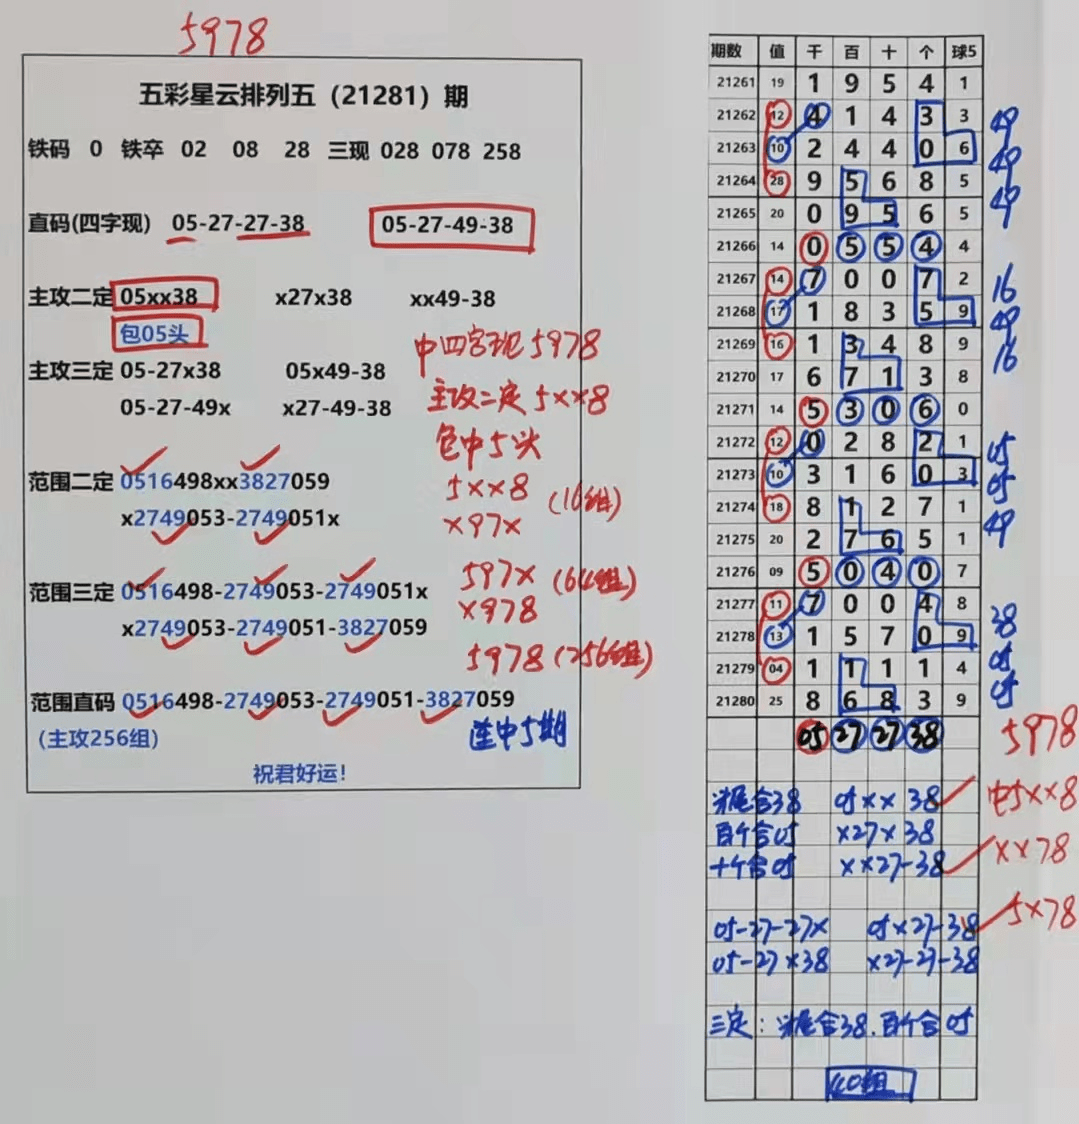 5978
五彩星云排列五（21281）期
铁码 0 铁卒 02 08 28 三现 028 078 258
直码(四字现) 05-27-27-38 05-27-49-38
主攻二定 05xx38 x27x38 xx49-38
包05头
中四字现5978
主攻三定 05-27x38 05x49-38
主攻二定5xx8
05-27-49x x27-49-38
包中5头
范围二定 0516498xx3827059
5xx8 (16组)
x2749053-2749051x
x97x
范围三定 0516498-2749053-2749051x
597x (64组)
x2749053-2749051-3827059
x978
5978(256组)
范围直码 0516498-2749053-2749051-3827059
(主攻256组)
连中5期
祝君好运！
期数 值 千 百 十 个 球5
21261 19 1 9 5 4 1
21262 12 4 1 4 3 3 49
21263 10 2 4 4 0 6 49
21264 28 9 5 6 8 5 49
21265 20 0 9 5 6 5
21266 14 0 5 5 4 4
21267 14 7 0 0 7 2 16
21268 17 1 8 3 5 9 49
21269 16 1 3 4 8 9 16
21270 17 6 7 1 3 8
21271 14 5 3 0 6 0
21272 12 0 2 8 2 1 05
21273 10 3 1 6 0 3 05
21274 18 8 1 2 7 1 49
21275 20 2 7 6 5 1
21276 09 5 0 4 0 7
21277 11 7 0 0 4 8 38
21278 13 1 5 7 0 9
21279 04 1 1 1 1 4 05
21280 25 8 6 8 3 9 05
05 27 27 38 5978
尾合38 05xx38 中5xx8
百个合05 x27x38
十个合05 xx27-38 xx78
05-27-27x 05x27-38 5x78
05-27x38 x27-27-38
三定：尾合38.百个合05
40组